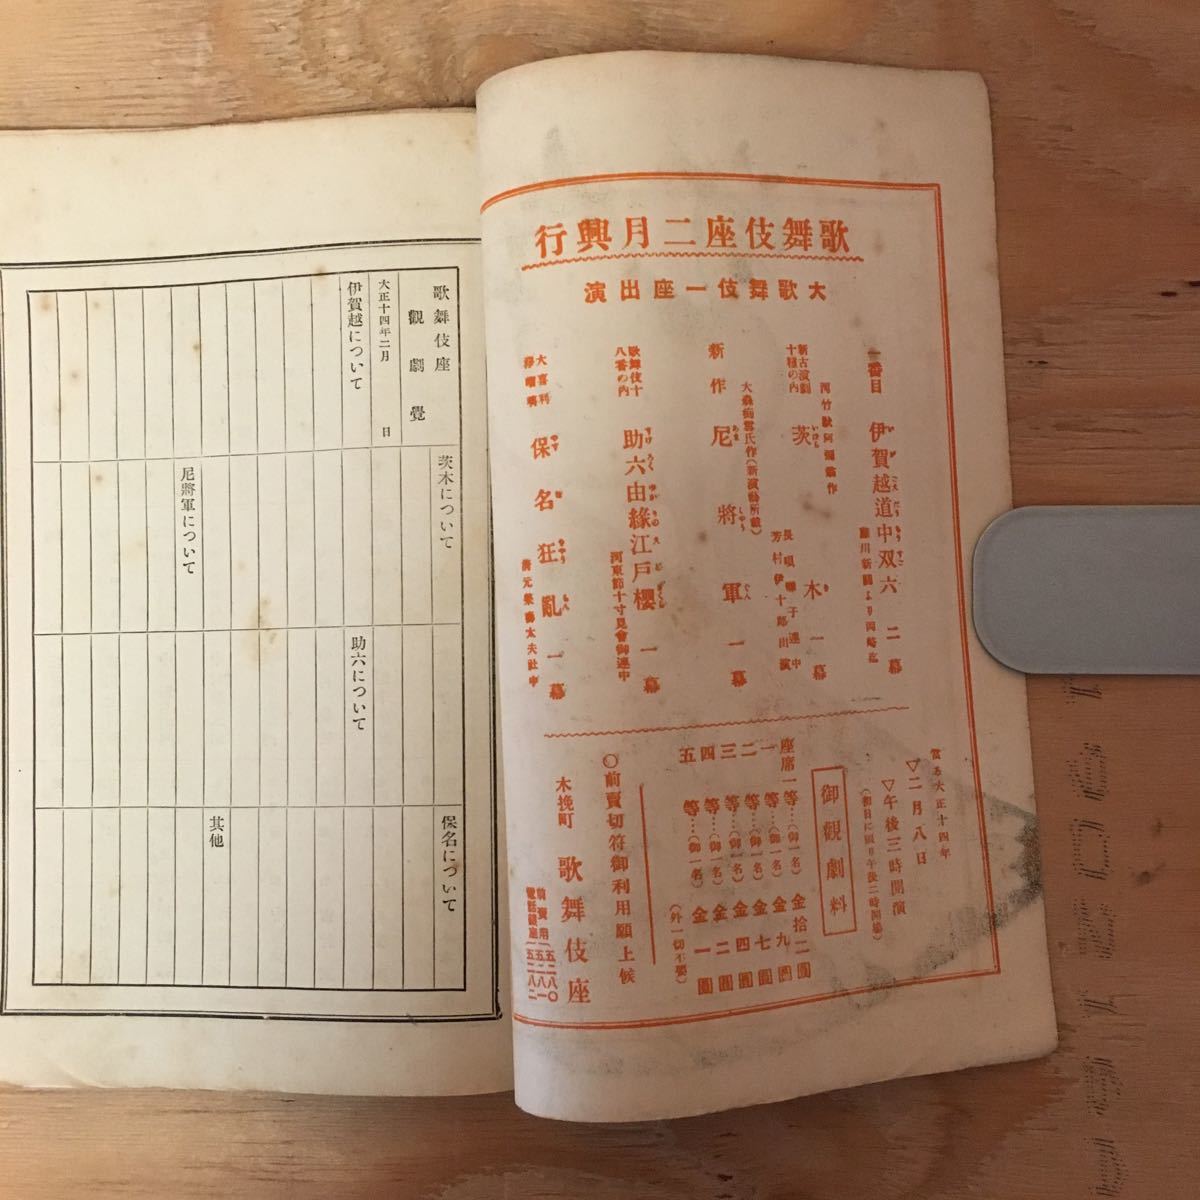 歌舞伎座二月興行
大歌舞伎一座出演
一番目 伊賀越道中双六 二幕
藤川新關より岡崎迄
新古演劇十種の内
河竹默阿彌翁作
茨木 一幕
長唄囃子連中
芳村伊十郎出演
大森痴雪氏作(新演藝所載)
新作 尼將軍 一幕
歌舞伎十八番の内
助六由緣江戸櫻 一幕
河東節十寸見會御連中
大喜利
保名狂亂 一幕
清元榮壽太夫社中
當る大正十四年
▽二月八日
▽午後三時開演
御觀劇料
座席一等…(御一名) 金拾二圓
一等…(御一名) 金九圓
二等…(御一名) 金七圓
三等…(御一名) 金四圓
四等…(御一名) 金二圓
五等…(御一名) 金一圓
(外一切不要)
○前賣切符御利用願上候
木挽町 歌舞伎座
歌舞伎座
觀劇覺
大正十四年二月 日
伊賀越について
茨木について
尼將軍について
助六について
保名について
其他